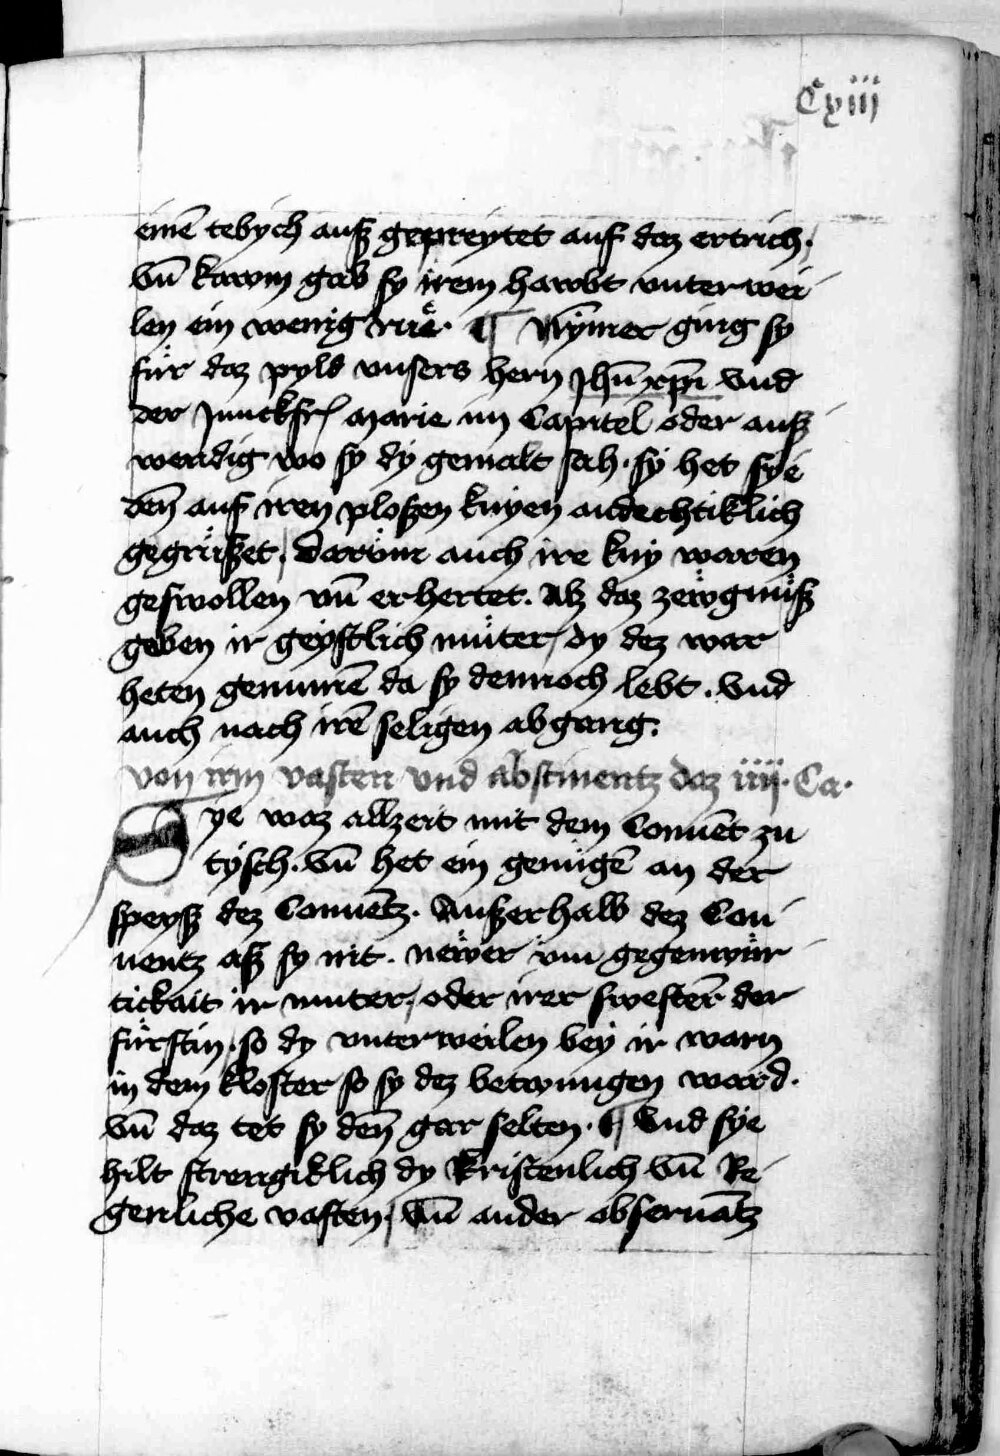 Cxiii
einē tebich auß gepreytet auf daz ertrich.
vn̄ kawm gab sy irem hawbt vnterwei
len ein wenig rue. ¶ Nymer ging sy
für daz pyld vnsers hern Jhū xpī vnd
der Junckfr̄ marie im Capitel oder auß
wendig wo sy dy gemalt sah. sy het sye
den̄ auf iren ploßen knyen andechtiklich
gegrüßet. darüm auch ire kny waren
geswollen vn̄ erhertet. Alz daz zewgnüß
geben ir geystlich müter dy dez war
heten genumē da sy dennoch lebt. vnd
auch nach irē seligen abgang.
von irm vasten vnd abstinentz daz iiij. Ca.
Sye waz allzeit mit dem Conuēt zu
tysch. vn̄ het ein genügē an der
speyß dez Conuētz. Außerhalb dez Con
uentz aß sy nit. newer vm gegenwür
tickait ir muter, oder irer swester der
fürstin. so dy vnterweilen bey ir warn
in dem kloster so sy dez betwungen ward.
vn̄ daz tet sy den̄ gar selten. ¶ Vnd sye
hilt strengiklich dy kristenlich vn̄ Re
genliche vasten, vn̄ ander obseruātz